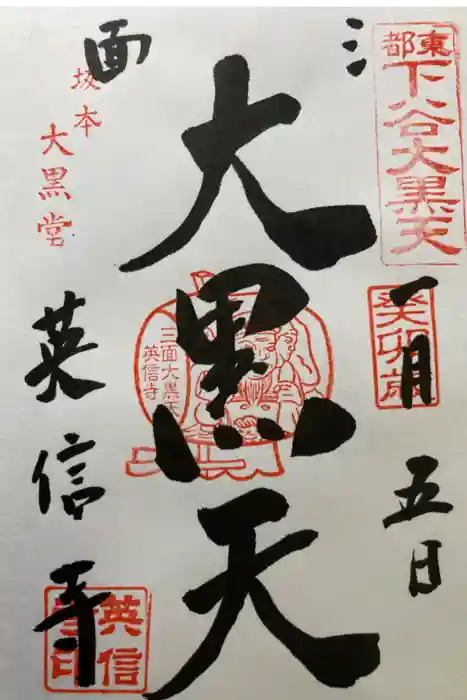 三面
東都
下谷大黒天
癸卯歳
一月五日
大黒天
三面大黒天
英信寺
坂本
大黒堂
英信寺
英信
寺印